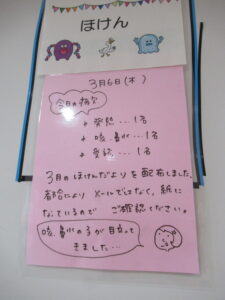 ほけん
3月6日(木)
今日の病欠
発熱…1名
咳、鼻水…1名
受診…1名
3月のほけんだよりを配布しました。
都合により メールではなく、紙に
なっているので ご確認ください。
咳、鼻水の子が目立って
きました…